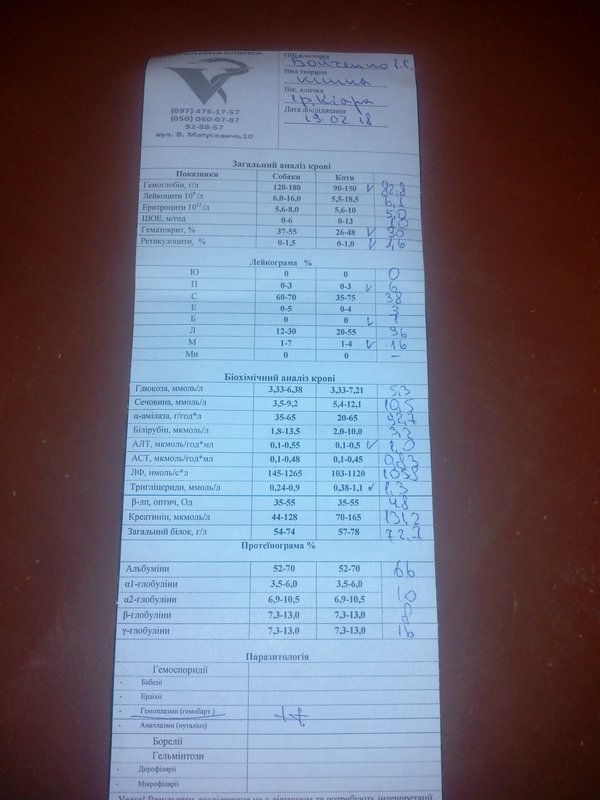 КЛІНІКА
(097) 476-17-57
(050) 060-07-87
92-88-57
вул. В. Матусевича,10
ПІП власника
Войтенко І.С.
Вид тварини
кішка
Вік, кличка
Кіара
Дата дослідження
19.02.18
Загальний аналіз крові
Показники Собаки Коти
Гемоглобін, г/л 120-180 90-150 82,8
Лейкоцити 10⁹/л 6,0-16,0 5,5-18,5 6,1
Еритроцити 10¹²/л 5,6-8,0 5,6-10 5,0
ШОЕ, м/год 0-6 0-13
Гематокрит, % 37-55 26-48 30
Ретикулоцити, % 0-1,5 0-1,0 1,6
Лейкограма %
Ю 0 0 0
П 0-3 0-3 6
С 60-70 35-75 38
Е 0-5 0-4 3
Б 0 0 1
Л 12-30 20-55 36
М 1-7 1-4 16
Мн 0 0 –
Біохімічний аналіз крові
Глюкоза, ммоль/л 3,33-6,38 3,33-7,21 5,3
Сечовина, ммоль/л 3,5-9,2 5,4-12,1 10,5
α-амілаза, г/год*л 35-65 20-65
Білірубін, мкмоль/л 1,8-13,5 2,0-10,0 3,2
АЛТ, мкмоль/год*мл 0,1-0,55 0,1-0,5
АСТ, мкмоль/год*мл 0,1-0,48 0,1-0,45
ЛФ, нмоль/с*л 145-1265 103-1120
Тригліцериди, ммоль/л 0,24-0,9 0,38-1,1 1,3
β-лп, оптич, Од 35-55 35-55 48
Креатинін, мкмоль/л 44-128 70-165 131,2
Загальний білок, г/л 54-74 57-78 72,7
Протеїнограма %
Альбуміни 52-70 52-70 66
α1-глобуліни 3,5-6,0 3,5-6,0
α2-глобуліни 6,9-10,5 6,9-10,5 10
β-глобуліни 7,3-13,0 7,3-13,0 8
γ-глобуліни 7,3-13,0 7,3-13,0 16
Паразитологія
Гемоспоридії
- Бабезії
- Ерліхії
- Гемоплазми (гемобарт.) ++
- Анаплазми (нуталіоз)
Борелії
Гельмінтози
- Дирофілярії
- Мікрофілярії
Увага! Результати дослідження не є діагнозом та потребують інтерпретації